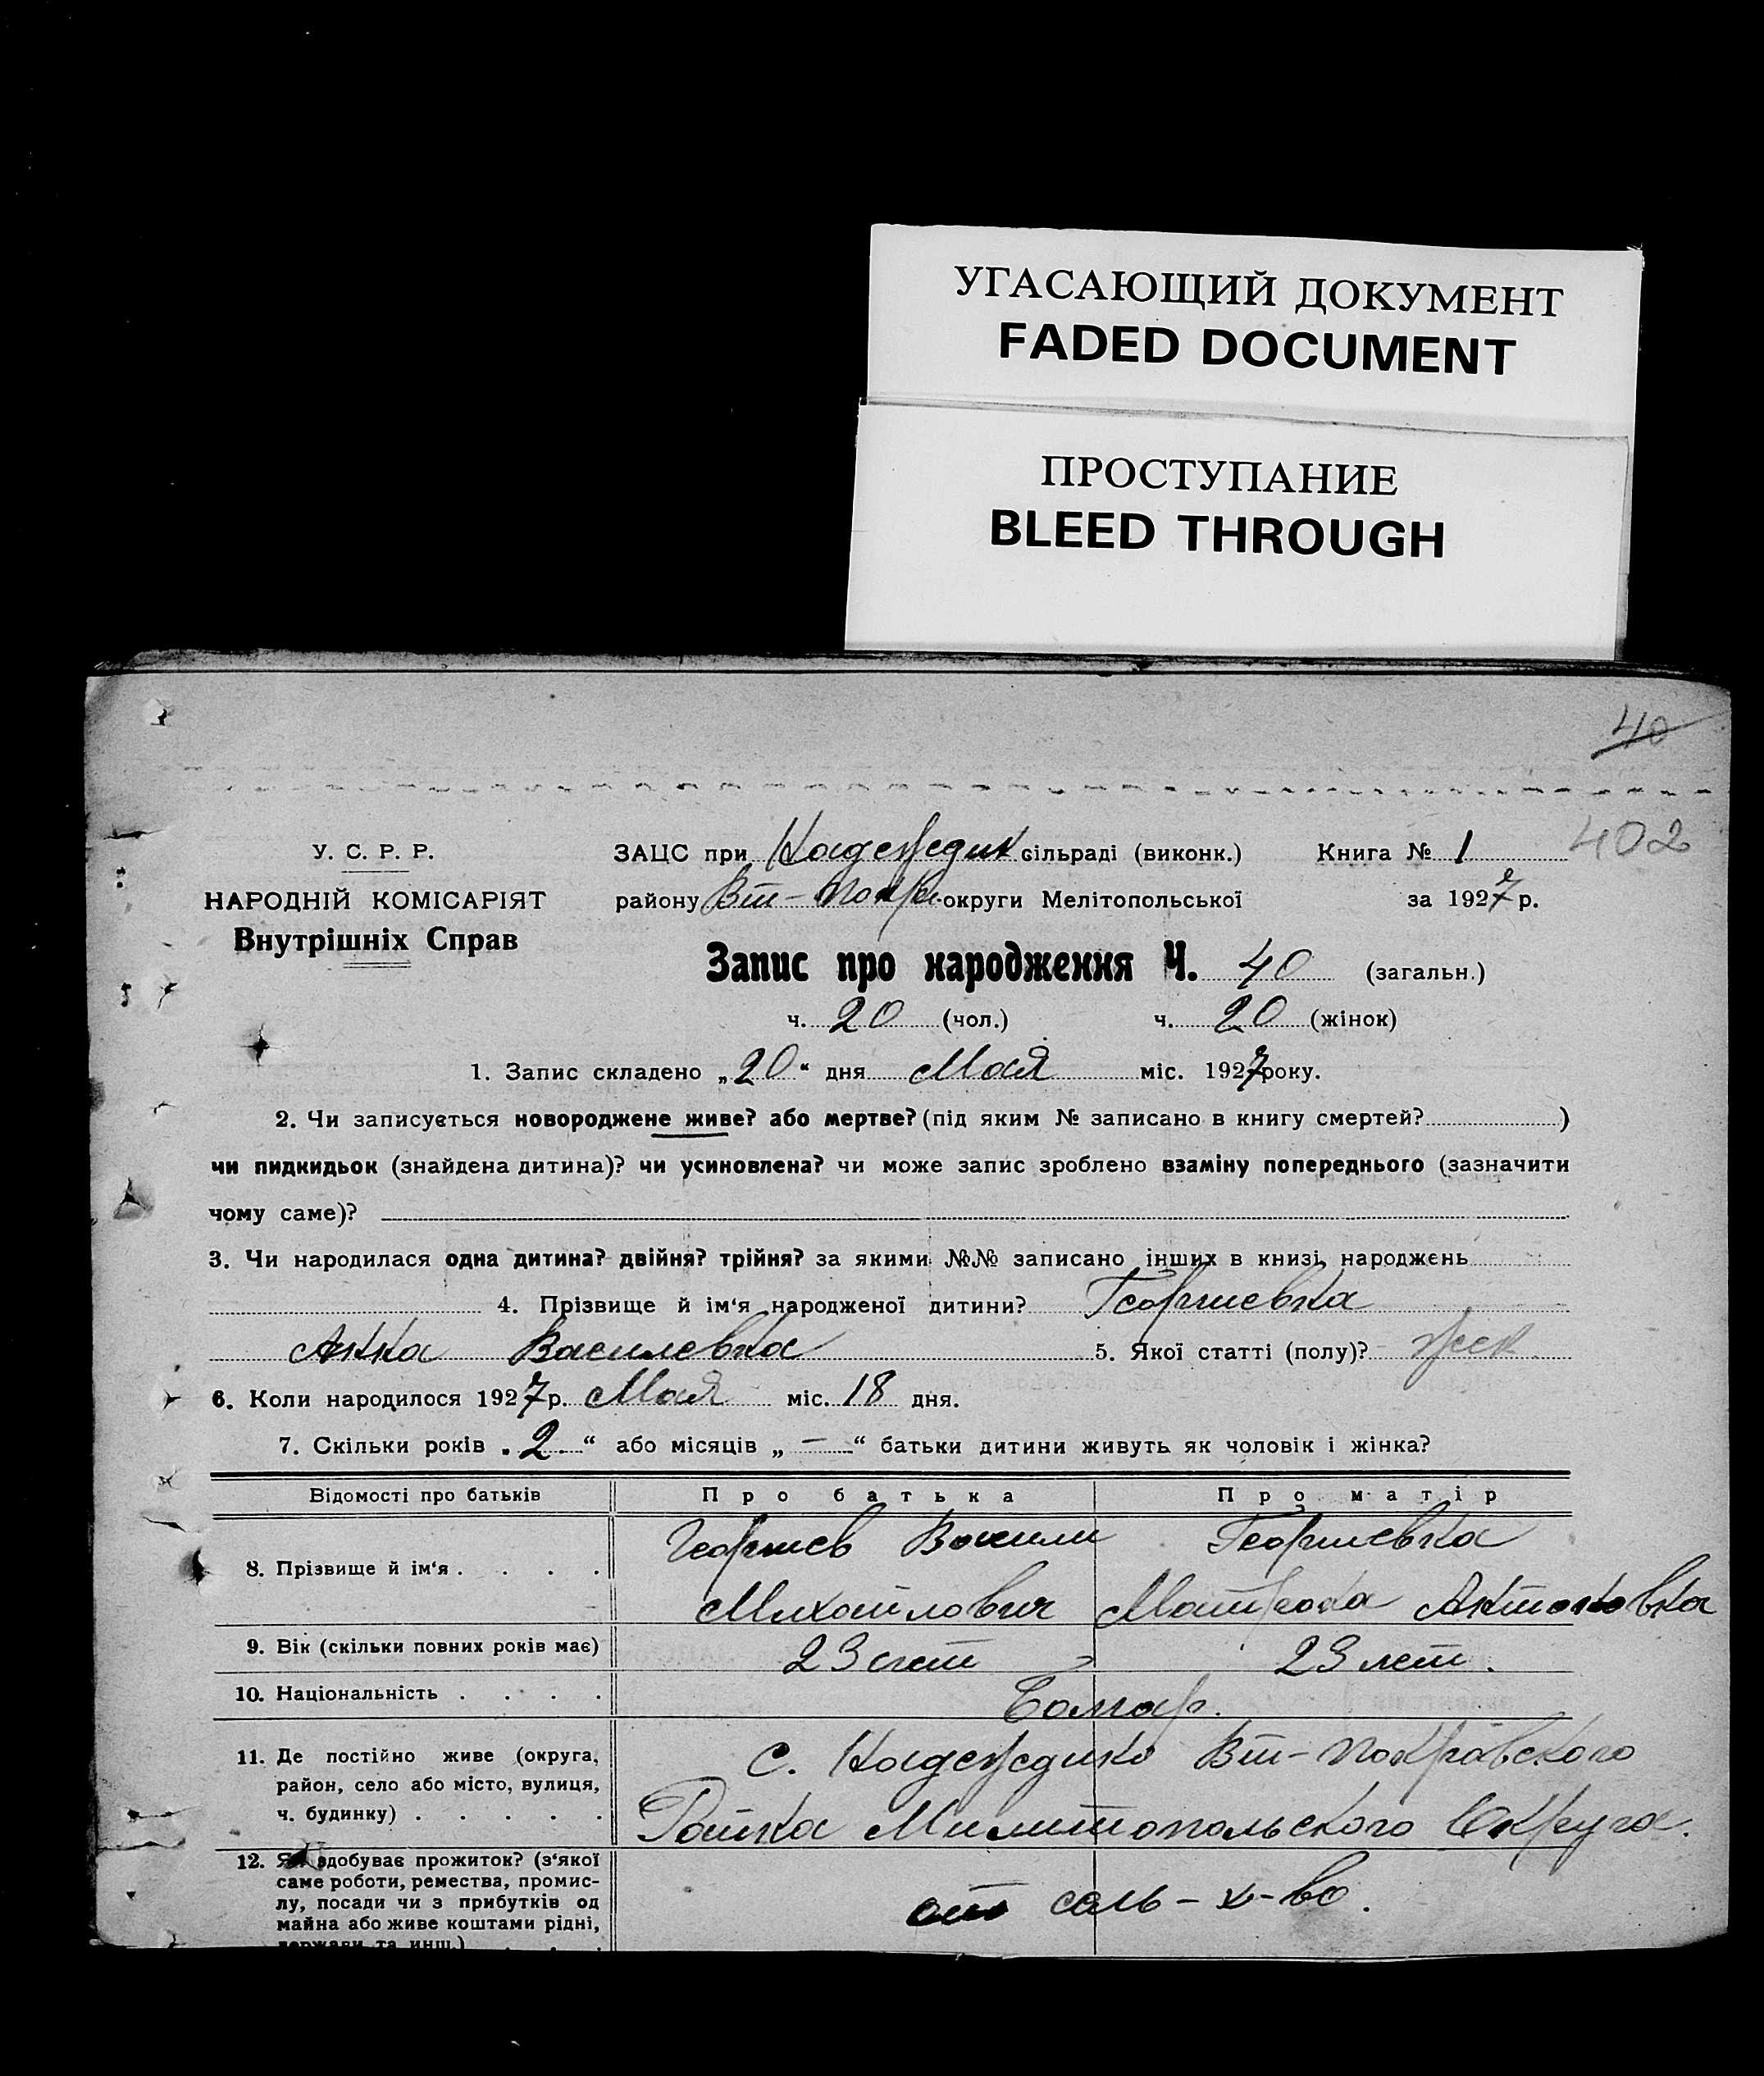 УГАСАЮЩИЙ ДОКУМЕНТ
FADED DOCUMENT
ПРОСТУПАНИЕ
BLEED THROUGH
40
402
У. С. Р. Р.
НАРОДНІЙ КОМІСАРІЯТ
Внутрішніх Справ
ЗАЦС при Надеждин сільраді (виконк.) Книга № 1
району Вт-Покр. округи Мелітопольської за 1927 р.
Запис про народження Ч. 40 (загальн.)
ч. 20 (чол.) ч. 20 (жінок)
1. Запис складено „20“ дня Мая міс. 1927 року.
2. Чи записується новороджене живе? або мертве? (під яким № записано в книгу смертей? )
чи пидкидьок (знайдена дитина)? чи усиновлена? чи може запис зроблено взаміну попереднього (зазначити
чому саме)?
3. Чи народилася одна дитина? двійня? трійня? за якими №№ записано інших в книзі народжень
4. Прізвище й ім‘я народженої дитини? Георгиевна
Анна Василевна 5. Якої статті (полу)? жен
6. Коли народилося 1927 р. Мая міс. 18 дня.
7. Скільки років „2“ або місяців „—“ батьки дитини живуть як чоловік і жінка?
Відомості про батьків Про батька Про матір
8. Прізвище й ім‘я . . . . Георгиев Васили Георгиевна
Михайлович Матрона Антоновна
9. Вік (скільки повних років має) 23 лет 23 лет.
10. Національність . . . . Болгар.
11. Де постійно живе (округа,
район, село або місто, вулиця,
ч. будинку) . . . . .
С. Надеждино Вт-Покровского
Района Милитопольского Округа.
12. Як здобуває прожиток? (з‘якої
саме роботи, ремества, промис-
лу, посади чи з прибутків од
майна або живе коштами рідні,
держави та инш.) . . .
от сель-х-во.